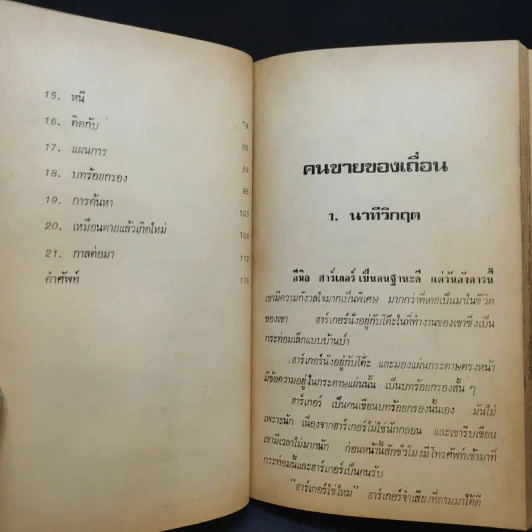 15. หนี
16. ติดกับ 79
17. แผนการ 85
18. บทร้อยกรอง 89
19. การค้นหา 95
20. เหมือนตายแล้วเกิดใหม่ 103
21. กาลต่อมา 108
คำศัพท์ 112
116
คนขายของเถื่อน
1. นาทีวิกฤต
ฮาร์เกอร์ เป็นคนฐานะดี แต่วันอังคารนี้
เขามีความกังวลใจมากเป็นพิเศษ มากกว่าที่เคยเป็นมาในชีวิต
ของเขา ฮาร์เกอร์นั่งอยู่กับโต๊ะในที่ทำงานของเขาซึ่งเป็น
กระท่อมเล็กแบบบ้านป่า
ฮาร์เกอร์นั่งอยู่กับโต๊ะ และมองแผ่นกระดาษตรงหน้า
มีข้อความอยู่ในกระดาษแผ่นนั้น เป็นบทร้อยกรองสั้น ๆ
ฮาร์เกอร์ เป็นคนเขียนบทร้อยกรองนั้นเอง มันไม่
เพราะนัก เนื่องจากฮาร์เกอร์ไม่ใช่นักกลอน และเขารีบเขียน
เขามีเวลาไม่มากนัก ก่อนหน้านี้สักชั่วโมงมีโทรศัพท์เข้ามาที่
กระท่อมนี้และฮาร์เกอร์เป็นคนรับ
"ฮาร์เกอร์ใช่ไหม" ฮาร์เกอร์จำเสียงที่ถามมาได้ดี